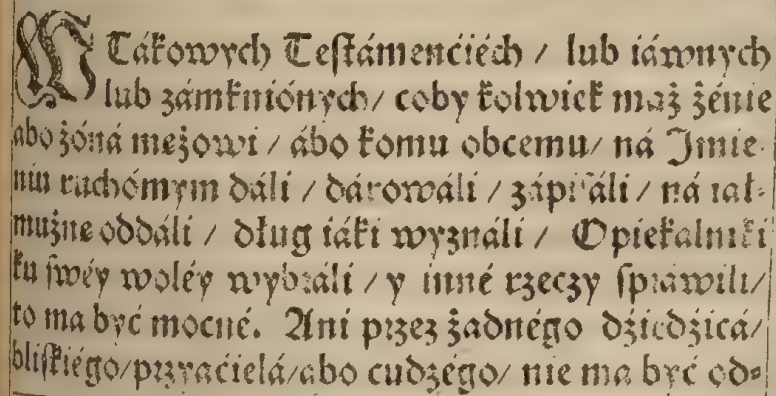 W Tákowych Teſtámenćiéch / lub iáwnych
lub zámkniónych / coby kolwiek mąż żenie
ábo żóná mężowi / ábo komu obcemu / ná Imie-
niu ruchómym dáli / dárowáli / zápiſáli / ná iał-
mużnę oddáli / dług iáki wyználi / Opiekálniki
ku ſwéy woléy wybráli / y inné rzeczy ſpráwili /
to ma być mocné. Ani przez żadnégo dźiedźicá /
bliſkiégo / przyaćielá / ábo cudzégo / nie ma być od-